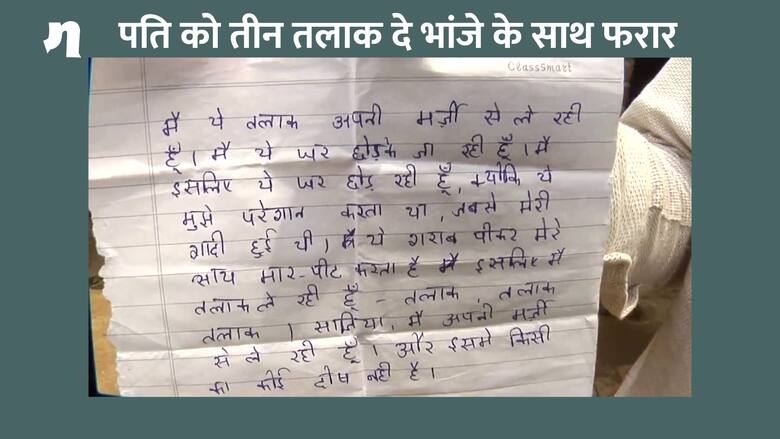 पति को तीन तलाक दे भांजे के साथ फरार
ClassSmart
मै ये तलाक अपनी मर्ज़ी से ले रही
हूँ । मै ये घर छोड़के जा रही हूँ । मै
इसलिए ये घर छोड़ रही हूँ, क्योकि ये
मुझे परेशान करता था, जबसे मेरी
शादी हुई थी । ये शराब पीकर मेरे
साथ मार-पीट करता है इसलिए मै
तलाक ले रही हूँ - तलाक, तलाक
तलाक । सानिया, मै अपनी मर्ज़ी
से ले रही हूँ । और इसमे किसी
का कोई दोष नही है ।